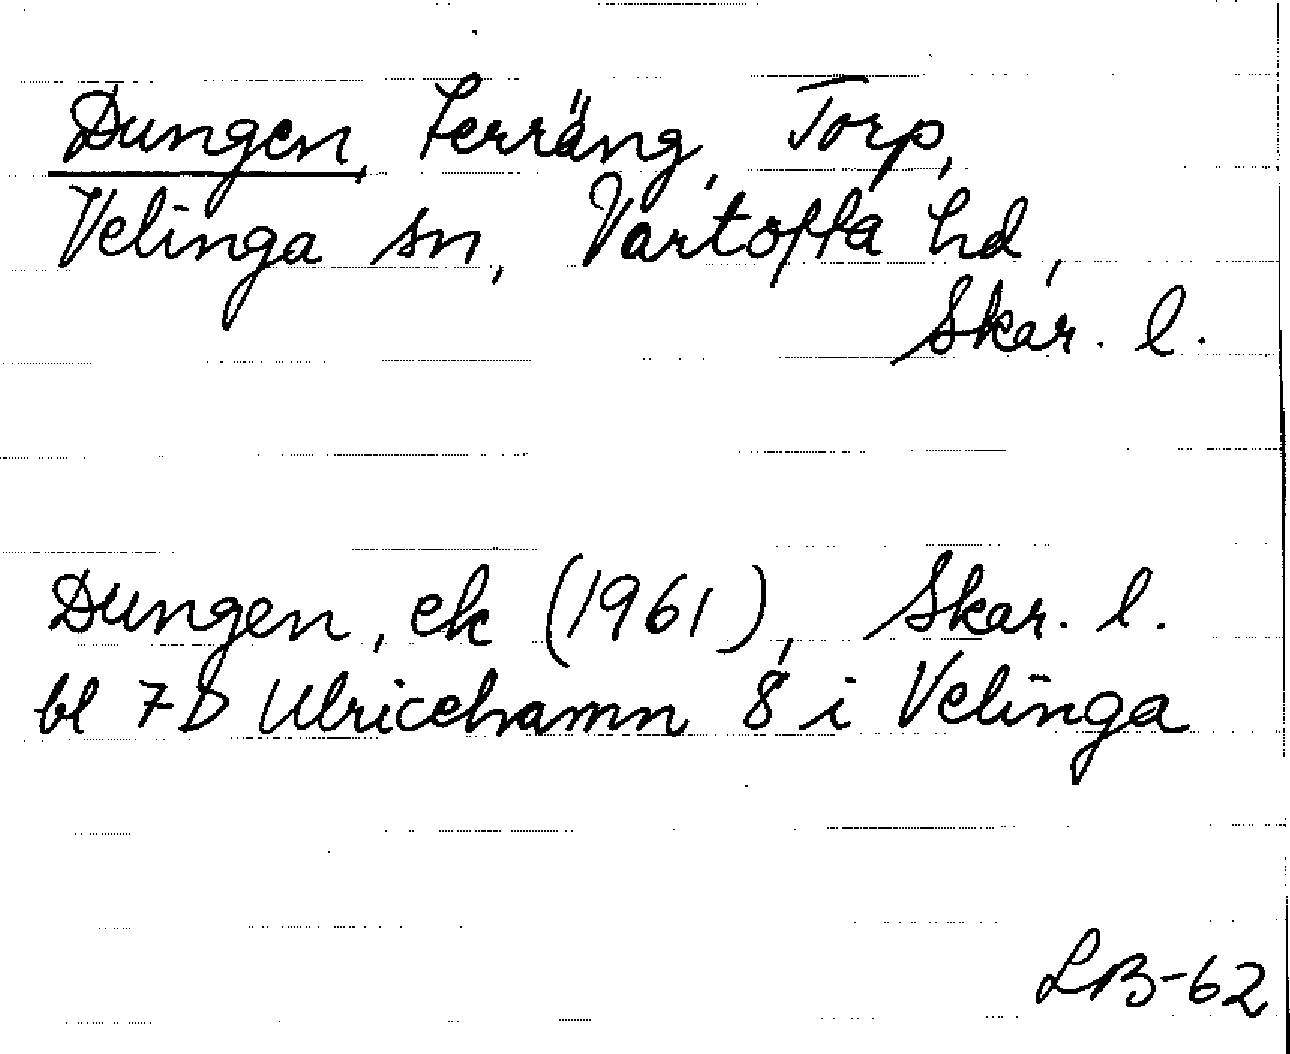 Dungen, terräng, Torp,
Velinga sn, Vartofta hd,
Skar. l.
Dungen, ek (1961), Skar. l.
bl 7D Ulricehamn 8 i Velinga
LB-62